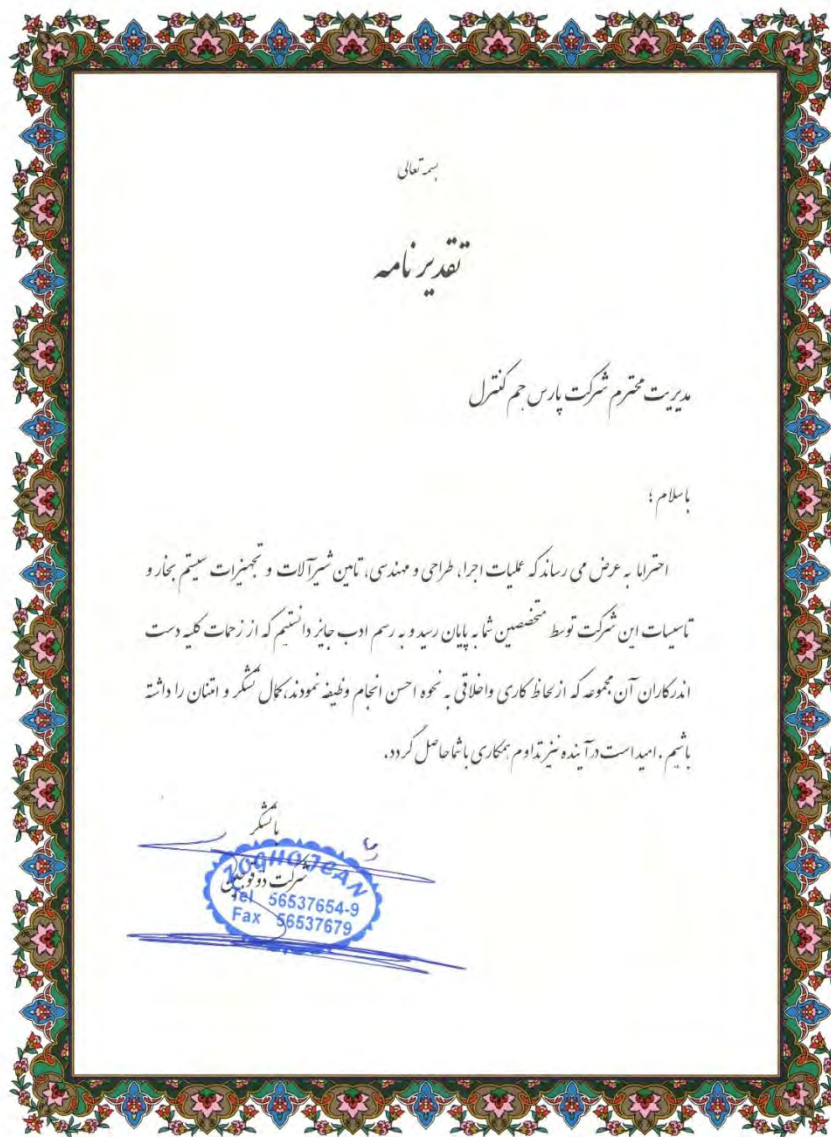 بسمه تعالی
تقدیر نامه
مدیریت محترم شرکت پارس جم کنترل
با سلام ؛
احتراما به عرض می رساند که عملیات اجرا، طراحی و مهندسی، تامین شیرآلات و تجهیزات سیستم بخار و
تاسیسات این شرکت توسط متخصصین شما به پایان رسید و به رسم ادب جایز دانستیم که از زحمات کلیه دست
اندرکاران آن مجموعه که از لحاظ کاری واخلاقی به نحوه احسن انجام وظیفه نمودند، کمال تشکر و امتنان را داشته
باشیم . امید است در آینده نیز تداوم همکاری با شما حاصل گردد.
با تشکر
شرکت
Tel 56537654-9
Fax 56537679